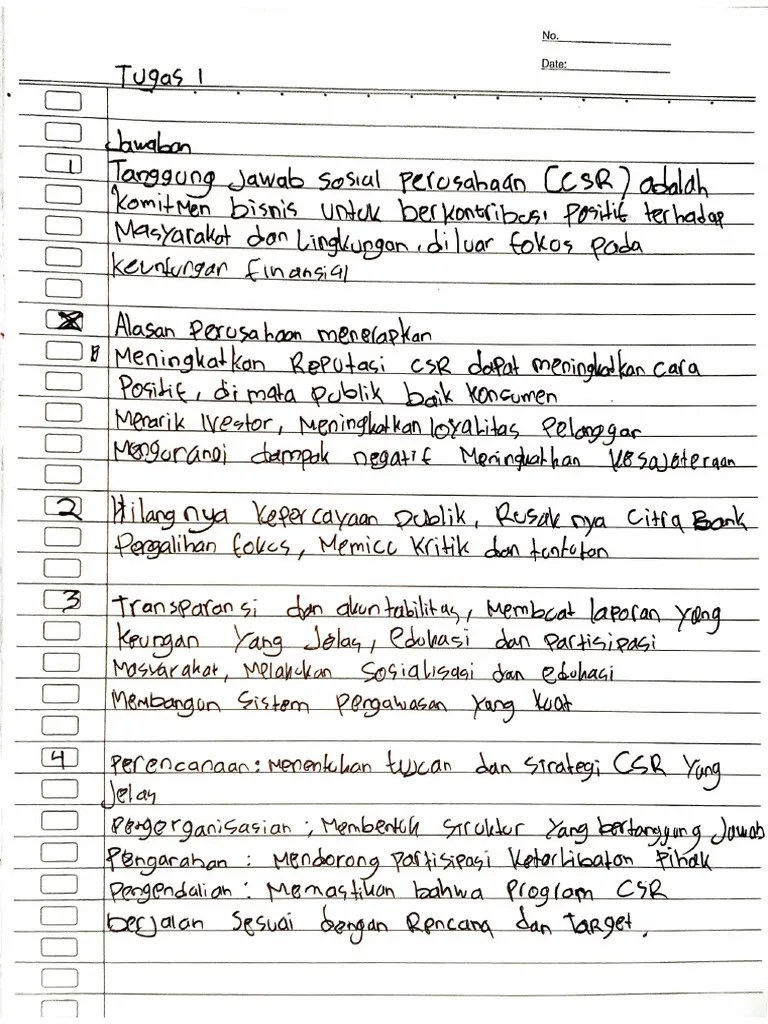 No.
Date:
Tugas 1
Jawaban
1 Tanggung Jawab sosial perusahaan (CSR) adalah
komitmen bisnis untuk berkontribusi positif terhadap
Masyarakat dan Lingkungan, diluar fokos pada
keuntungan finansial
Alasan perusahaan menerapkan
Meningkatkan Reputasi CSR dapat meningkatkan cara
Positif, di mata publik baik konsumen
Menarik Ivestor, Meningkatkan loyalitas Pelanggar
Mengurangi dampak negatif Meningkatkan Kesajateraan
2 Hilang nya kepercayaan publik, Rusak nya Citra Bank
Pengalihan fokus, Memicu Kritik dan tuntutan
3 Transparansi dan akuntabilitas, Membuat laporan yang
keungan yang Jelas, edukasi dan partisipasi
Masyarakat, Melakukan Sosialisasi dan edukasi
Membangun Sistem pengawasan yang kuat
4 perencanaan: Menentukan tujuan dan strategi CSR yang
Jelas
Pengorganisasian: Membentuk Struktur yang bertanggung Jawab
Pengarahan: Mendorong partisipasi keterlibatan Pihak
Pengendalian: Memastikan bahwa Program CSR
berjalan Sesuai dengan Rencana dan Target.